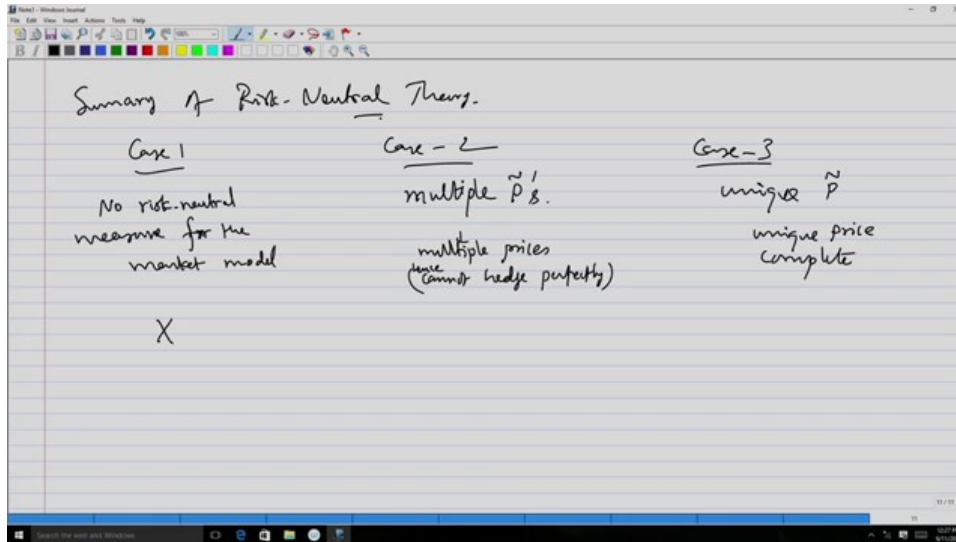 Note1 - Windows Journal
File Edit View Insert Actions Tools Help
Sumary of Risk-Neutral Theory.
Case 1
No risk-neutral
measure for the
market model
X
Case - 2
multiple P̃'s.
multiple prices
(hence cannot hedge perfectly)
Case - 3
unique P̃
unique price
complete
11 / 11
11
Search the web and Windows